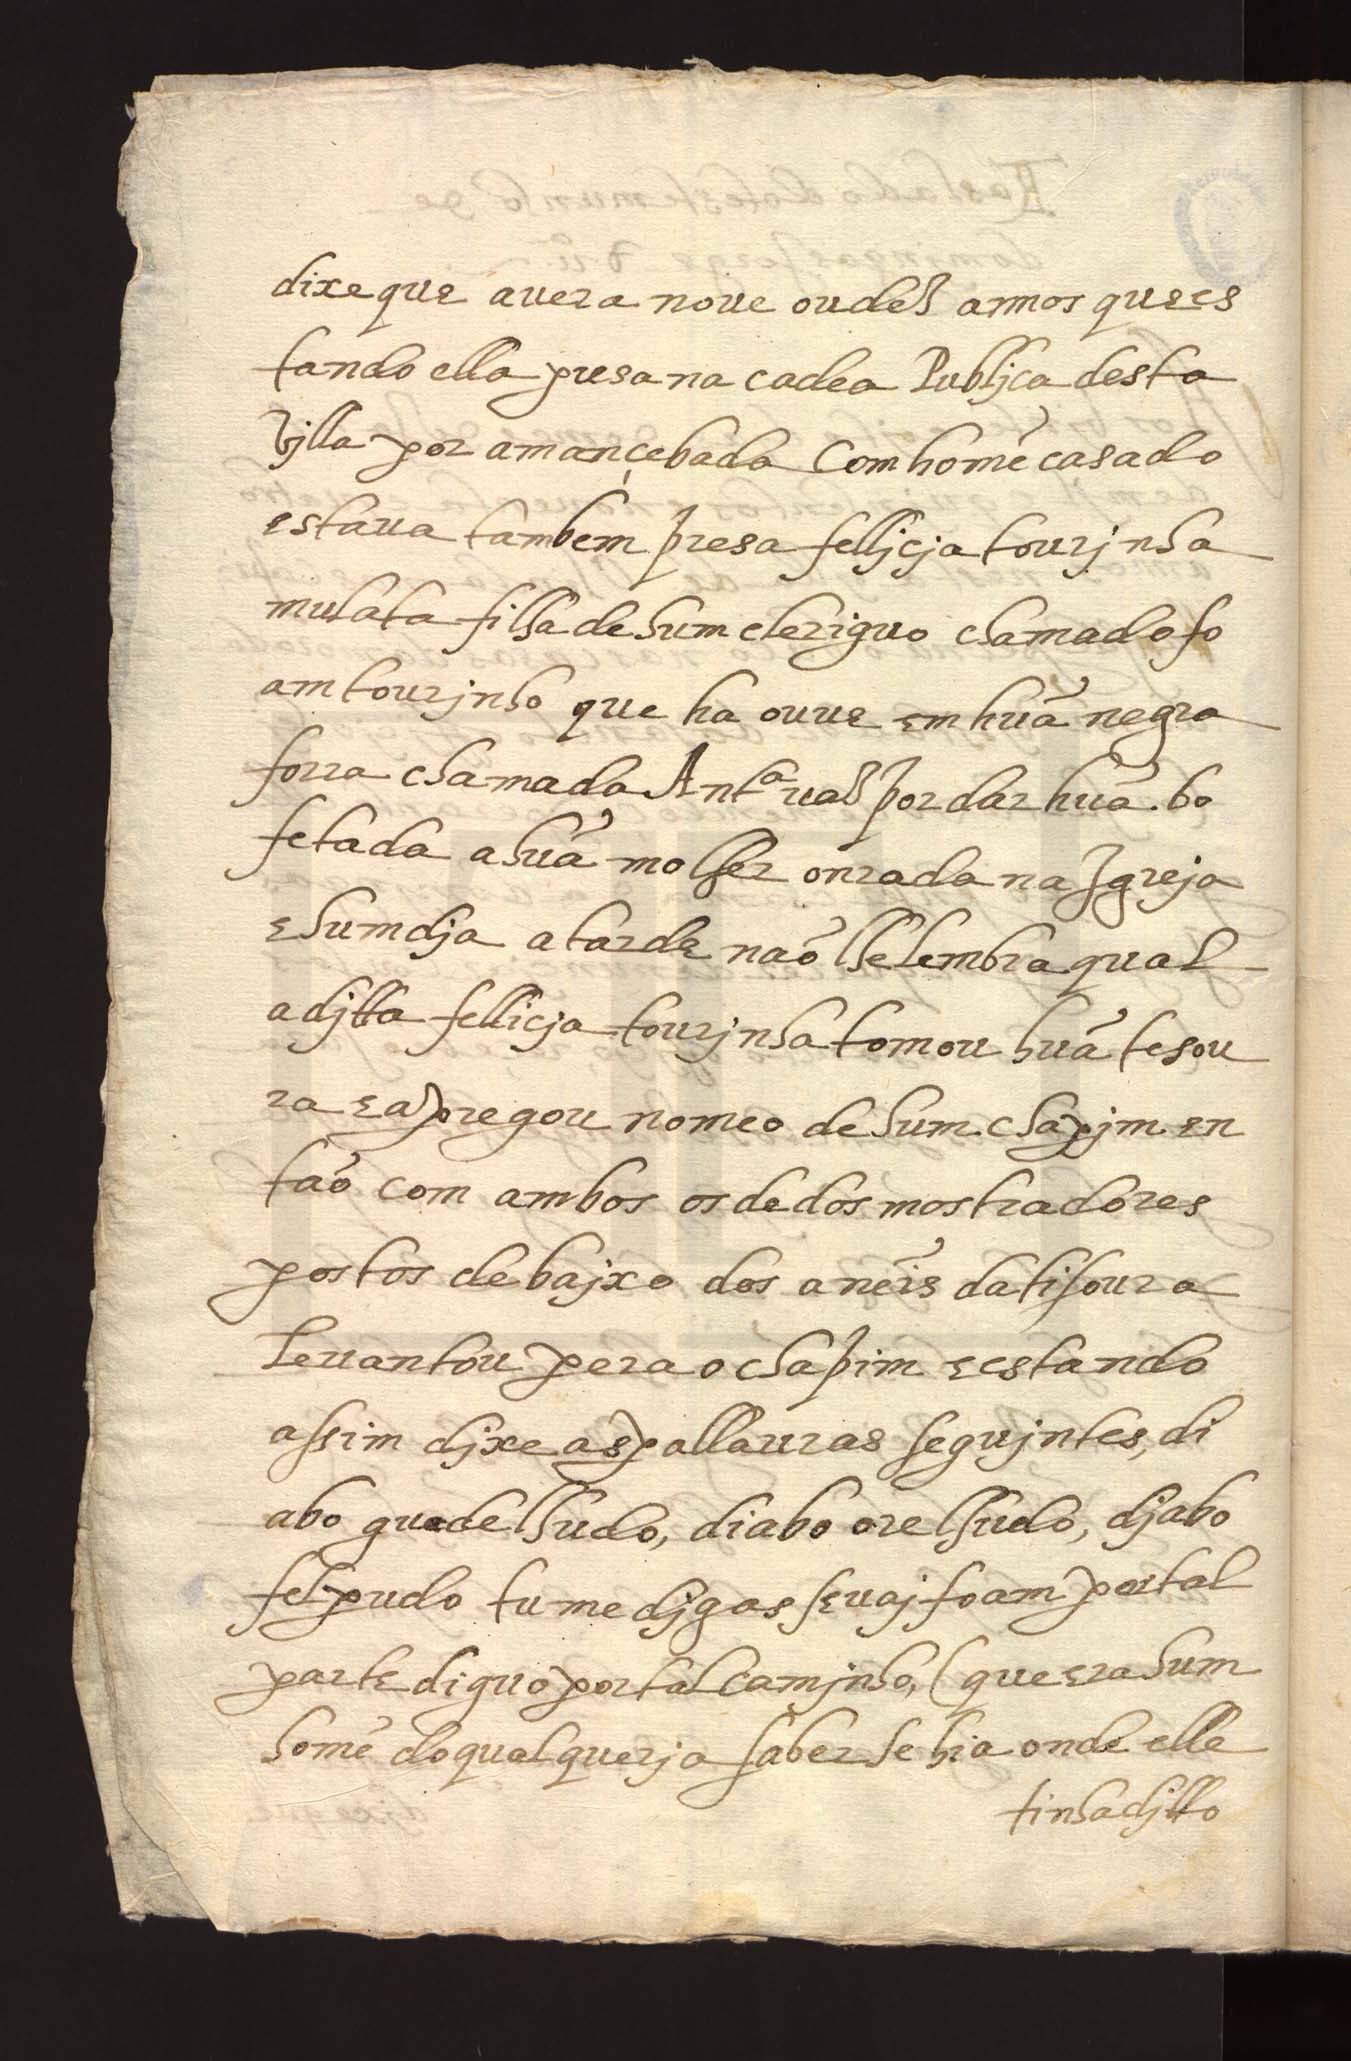 dixe que auera noue ou des annos que es
tando ella presa na cadea Publjca desta
Vjlla por amançebada Com homẽ casado
estaua tambem presa felljcja tourjnha
mulata filha de hum cleriguo chamado fo
am tourjnho que ha ouue em huã negra
forra chamada Ant.ª vas por dar huã bo
fetada a huã molher onrada na Igreja
e hum dja a tarde naõ lhe lembra qual
a djtta fellicja tourjnha tomou huã tesou
ra e a pregou no meo de hum chapjm en
taõ com ambos os dedos mostradores
postos debajxo dos aneis da tisoura
leuantou pera o chapim e estando
assim djxe as pallauras segujntes, di
abo guedelhudo, diabo orelhudo, djabo
felpudo tu me djgas se vaj foam por tal
parte diguo por tal Camjnho, (que era hum
homẽ do qual querja saber se hia onde elle
tinha djtto